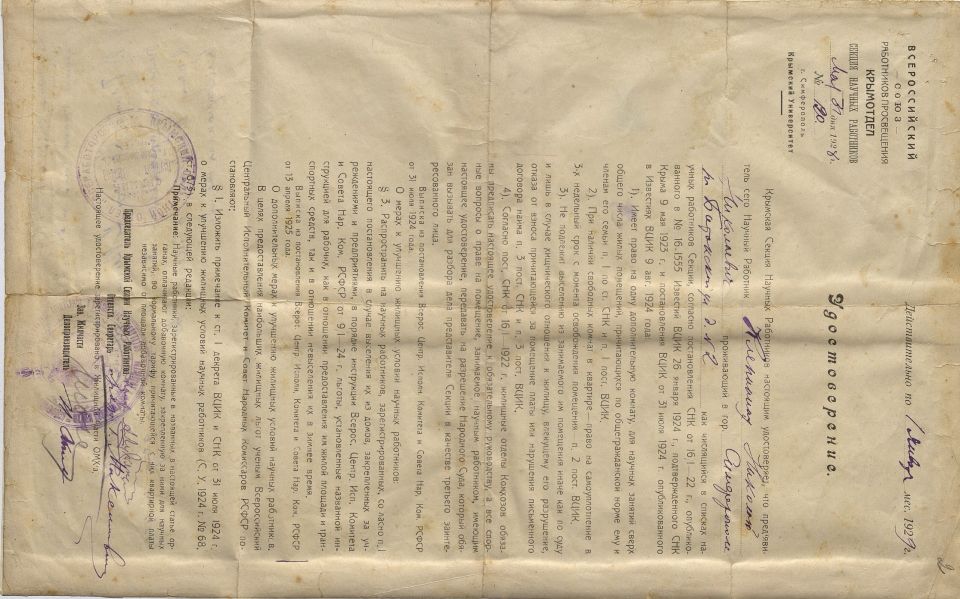 ВСЕРОССИЙСКИЙ
— СОЮЗ —
РАБОТНИКОВ ПРОСВЕЩЕНИЯ
КРЫМОТДЕЛ
СЕКЦИЯ НАУЧНЫХ РАБОТНИКОВ
Мая 31 дня 1928 г.
№ 130.
г. Симферополь
Крымский Университет
Действительно по 1 мес. 1929 г.
Удостоверение.
Крымская Секция Научных Работников настоящим удостоверяет, что предъяви-
тель сего Научный Работник
проживающий в гор. Симферополе
как числящийся в списках на-
учных работников Секции, согласно постановления СНК от 16/I—22 г., опублико-
ванного в № 16/1555 Известий ВЦИК 26 января 1924 г., подтвержденного СНК
Крыма 9 мая 1923 г., и постановления ВЦИК от 31 июля 1924 г. опубликованного
в Известиях ВЦИК 9 авг. 1924 года:
1). Имеет право на одну дополнительную комнату, для научных занятий сверх
общего числа жилых помещений, причитающихся по общегражданской норме ему и
членам его семьи п. 1 пост. СНК и п. 1 пост. ВЦИК.
2). При наличии свободных комнат в квартире—право на самоуплотнение в
3-х недельный срок с момента освобождения помещения—п. 2 пост. ВЦИК.
3). Не подлежит выселению из занимаемого им помещения иначе как по суду
и лишь в случае хищнического отношения к жилищу, влекущему его разрушение,
отказа от взноса причитающейся за помещение платы или нарушения письменного
договора найма п. 3 пост. СНК и п. 3 пост. ВЦИК.
4). Согласно пост. СНК от 16/I—1922 г. жилищные отделы Комхозов обяза-
ны предписать настоящее удостоверение к обязательному руководству, а все спор-
ные вопросы о праве на помещение, занимаемое научным работником, имеющим
настоящее удостоверение, передавать на разрешение Народного Суда, который обя-
зан вызывать для разбора дела представителя Секции в качестве третьего заинте-
ресованного лица.
Выписка из постановления Всерос. Центр. Исполн. Комитета и Совета Нар. Ком. РСФСР
от 31 июля 1924 г.
О мерах к улучшению жилищных условий научных работников:
§ 3. Распространить на научных работников, зарегистрированных, согласно п. 1
настоящего постановления в случае выселения их из домов, закрепленных за уч-
реждениями и предприятиями, в порядке инструкции Всерос. Центр. Исп. Комитета
и Совета Нар. Ком. РСФСР от 9/I—24 г., льготы, установленные названной ин-
струкцией для рабочих, как в отношении предоставления им жилой площади и тран-
спортных средств, так и в отношении невыселения их в зимнее время.
Выписка из постановления Всерос. Центр. Исполн. Комитета и Совета Нар. Ком. РСФСР
от 13 апреля 1925 года.
О дополнительных мерах к улучшению жилищных условий научных работник. в.
В целях предоставления наибольших жилищных льгот ученым Всероссийский
Центральный Исполнительный Комитет и Совет Народных Комиссаров РСФСР по-
становляют:
§ 1. Изложить примечание к ст. 1 декрета ВЦИК и СНК от 31 июля 1924 г.
о мерах к улучшению жилищных условий научных работников (С. У. 1924 г. № 68,
ст. 675) в следующей редакции:
Примечание: Научные работники, зарегистрированные в названных в настоящей статье ор-
ганах, оплачивают добавочную комнату, закрепленную за ними для научных
занятий, по нормальному тарифу причитающейся с них квартирной платы
независимо от площади добавочной комнаты.
Председатель Крымской Секции Научных Работников
Ответств. Секретарь
Зав. Жилчасти
Делопроизводитель
Настоящее удостоверение зарегистрировано в Жилищной части ОМХ'а.